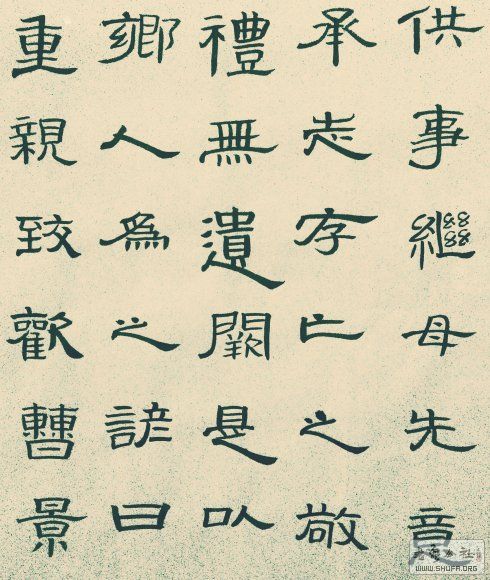 供事繼母先意
承志存亡之敬
禮無遺闕是以
鄉人為之諺曰
重親致歡曹景
WWW.SHUFA.ORG